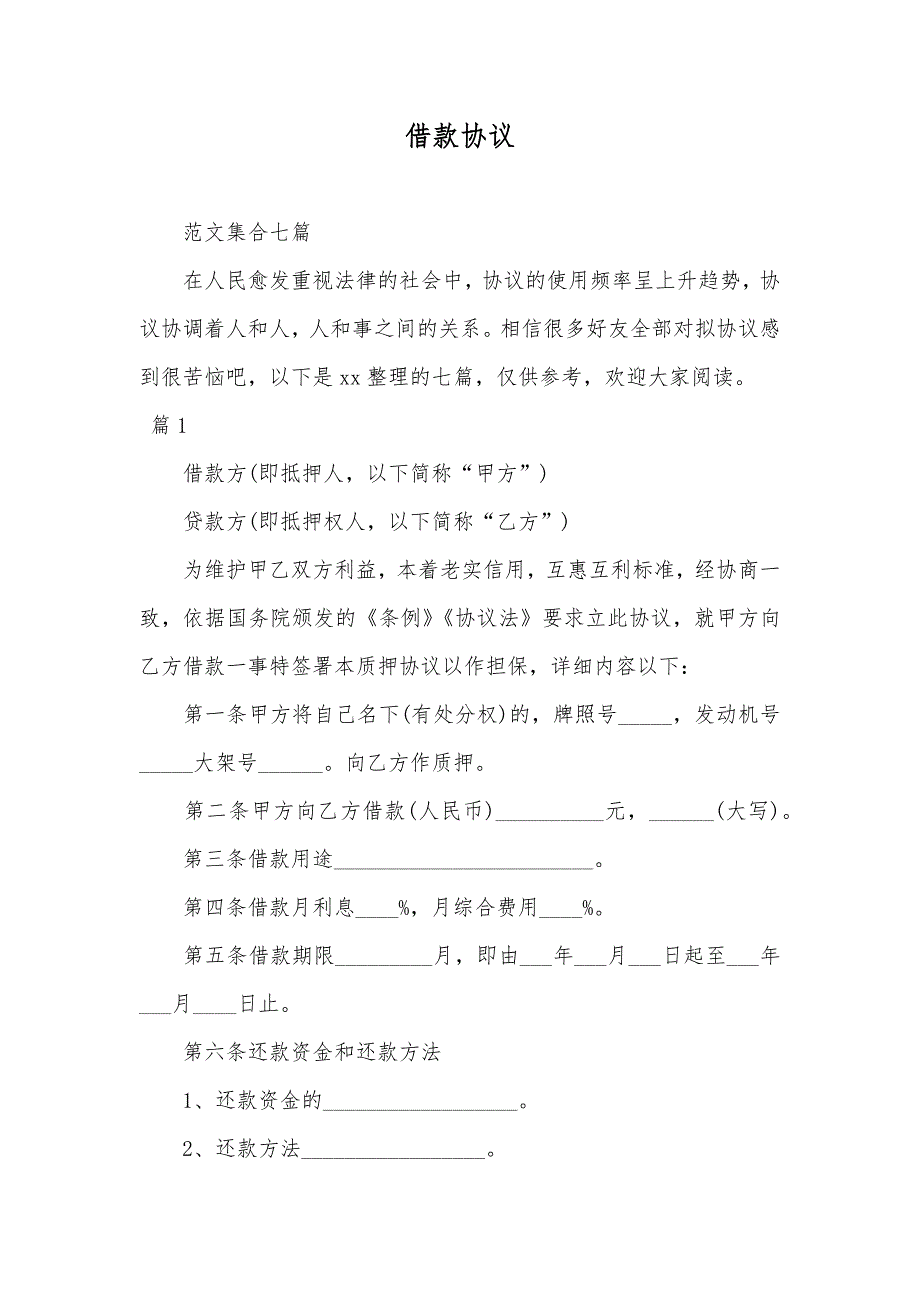 借款协议
范文集合七篇
在人民愈发重视法律的社会中，协议的使用频率呈上升趋势，协
议协调着人和人，人和事之间的关系。相信很多好友全部对拟协议感
到很苦恼吧，以下是 xx 整理的七篇，仅供参考，欢迎大家阅读。
篇 1
借款方(即抵押人，以下简称“甲方”)
贷款方(即抵押权人，以下简称“乙方”)
为维护甲乙双方利益，本着老实信用，互惠互利标准，经协商一
致，依据国务院颁发的《条例》《协议法》要求立此协议，就甲方向
乙方借款一事特签署本质押协议以作担保，详细内容以下：
第一条甲方将自己名下(有处分权)的，牌照号_____，发动机号
_____大架号______。向乙方作质押。
第二条甲方向乙方借款(人民币)__________元，______(大写)。
第三条借款用途________________________。
第四条借款月利息____%，月综合费用____%。
第五条借款期限_________月，即由___年___月___日起至___年
___月____日止。
第六条还款资金和还款方法
1、还款资金的__________________。
2、还款方法_________________。